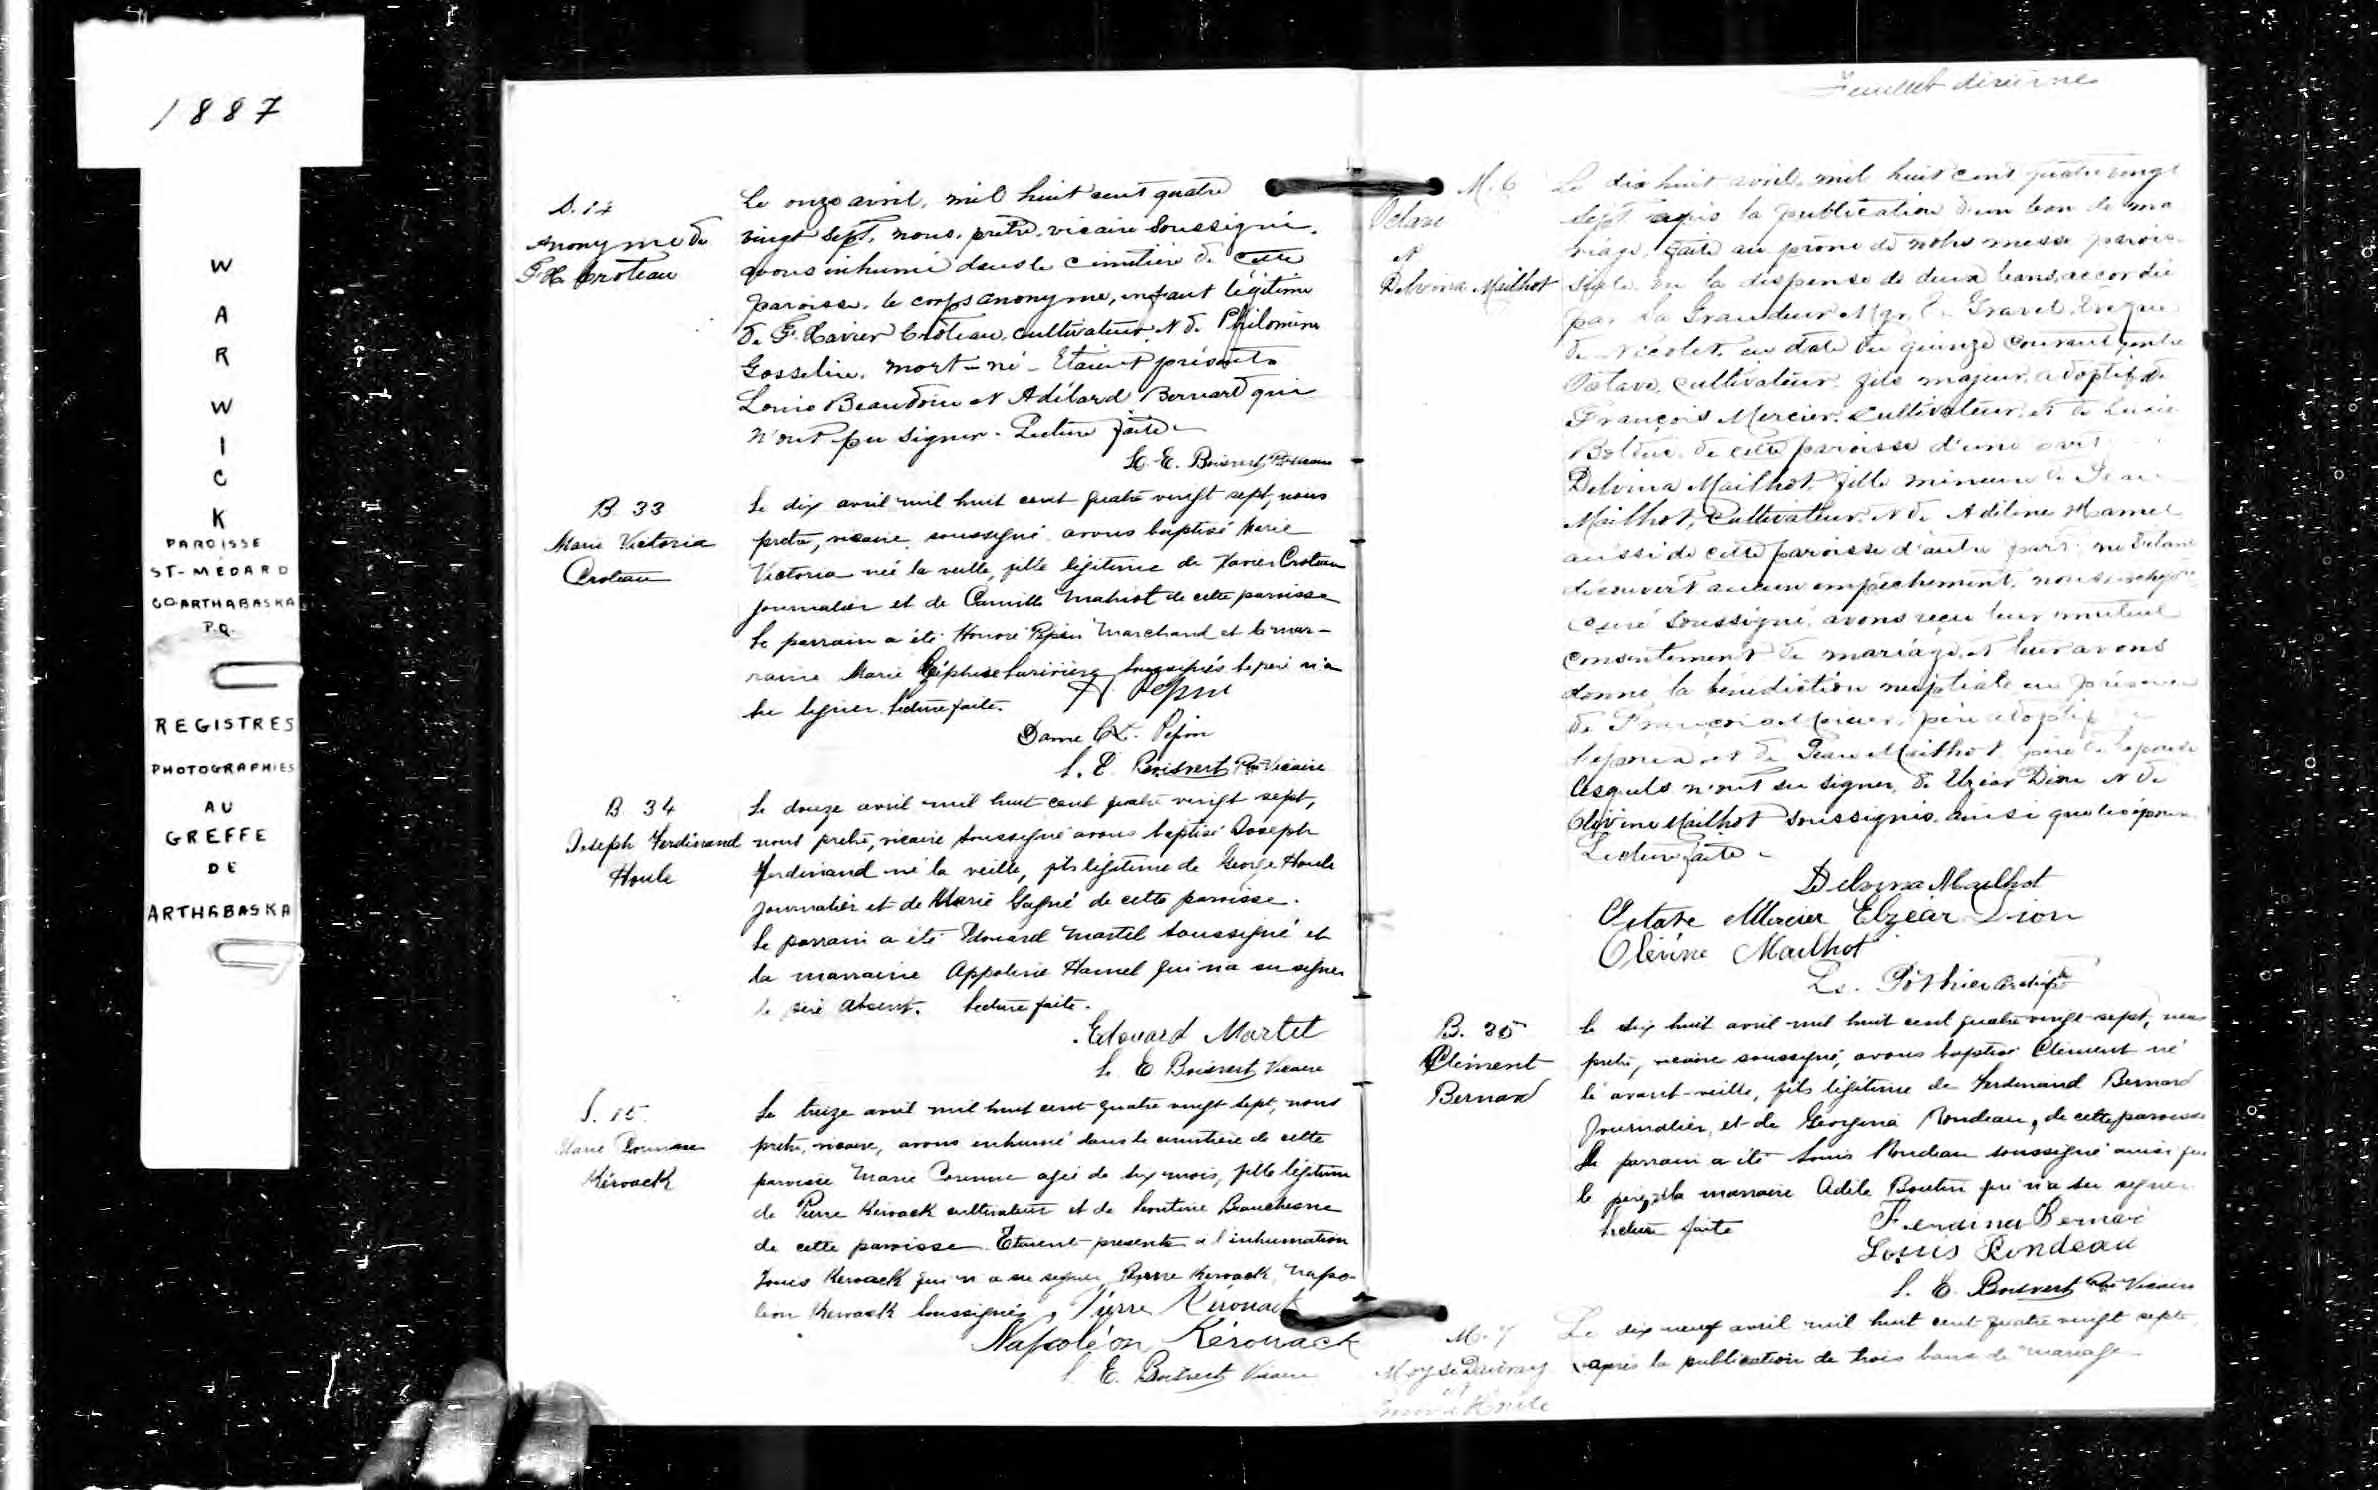 1887
WARWICK
PAROISSE
ST-MEDARD
CO-ARTHABASKA
P.Q.
REGISTRES
PHOTOGRAPHIES
AU
GREFFE
DE
ARTHABASKA
Anonyme de
F. X. Croteau
Le onze avril, mil huit cent quatre
vingt sept, nous, prêtre, vicaire soussigné,
avons inhumé dans le cimetière de cette
paroisse, le corps anonyme, enfant légitime
de F. Xavier Croteau, cultivateur & de Philomène
Gosselin, mort-né - Etaient présents
Louis Beaudoin et Adélard Bernard qui
n'ont pu signer. Lecture faite
L. E. Boisvert Ptre Vicaire
B 33
Marie Victoria
Croteau
Le dix avril mil huit cent quatre vingt sept, nous
pretre, vicaire, soussigné avons baptisé Marie
Victoria née la veille, fille légitime de Xavier Croteau
journalier et de Camille de cette paroisse
Le parrain a été Honoré Pepin Marchand et la mar-
raine Marie soussignés le père n'a
su signer. Lecture faite.
H. Pepin
Dame Pepin
L. E. Boisvert Ptre Vicaire
B 34
Joseph Ferdinand
Houle
Le douze avril mil huit cent quatre vingt sept,
nous pretre, vicaire soussigné avons baptisé Joseph
Ferdinand né la veille, fils légitime de George Houle
journalier et de Marie Gagné de cette paroisse.
Le parrain a été Edouard Martel soussigné et
la marraine Appoline Hamel qui n'a su signer
le père absent. Lecture faite.
Edouard Martel
L. E Boisvert Vicaire
S. 15
Marie Corinne
Kérouack
Le treize avril mil huit cent quatre vingt sept, nous
pretre, vicaire, avons inhumé dans le cimetière de cette
paroisse Marie Corinne agée de six mois, fille légitime
de Pierre Kérouack cultivateur et de Léontine Beauchesne
de cette paroisse. Etaient presents à l'inhumation
Louis Kerouack qui n'a su signer, Pierre Kerouack, Napo-
léon Kerouack soussignés, Pierre Kérouack
Napoléon Kérouack
L. E. Boisvert Vicaire
Feuillet dixième
M. 6
Octave
&
Delvina Mailhot
Le dix huit avril, mil huit cent quatre vingt
sept après la publication d'un ban de ma
riage, faite au prône de notre messe parois-
siale, vu la dispense de deux bans, accordée
par Sa Grandeur Mgr. E. Gravel, Evêque
de Nicolet, en date du quinze courant, entre
Octave, cultivateur, fils majeur, adoptif de
François Mercier, cultivateur, et de Lucie
Bolduc, de cette paroisse d'une part
Delvina Mailhot, fille mineure de Jean
Mailhot, Cultivateur & de Adeline Hamel
aussi de cette paroisse d'autre part; ne s'étant
découvert aucun empêchement, nous,
curé soussigné, avons reçu leur mutuel
consentement de mariage et leur avons
donné la bénédiction nuptiale en présence
de François Mercier, père adoptif
l'époux, et de Jean Mailhot, père de l'épouse
lesquels n'ont su signer, de Elzéar Dion & de
Olévine Mailhot soussignés, ainsi que les époux.
Lecture faite -
Delvina Mailhot
Octave Mercier Elzéar Dion
Olévine Mailhot
Ls. Pothier
B. 35
Clément
Bernard
Le dix huit avril mil huit cent quatre vingt-sept, nous
pretre, vicaire soussigné, avons baptisé Clément né
l'avant-veille, fils légitime de Ferdinand Bernard
Journalier, et de Georgina Rondeau, de cette paroisse
Le parrain a été Louis Rondeau soussigné ainsi que
le père, & la marraine Adèle Boutin qui n'a su signer
lecture faite
Ferdina Bernard
Louis Rondeau
L. E. Boisvert Ptre Vicaire
M. 7
Moyse
&
Houle
Le dix neuf avril mil huit cent quatre vingt sept
après la publication de trois bans de mariage